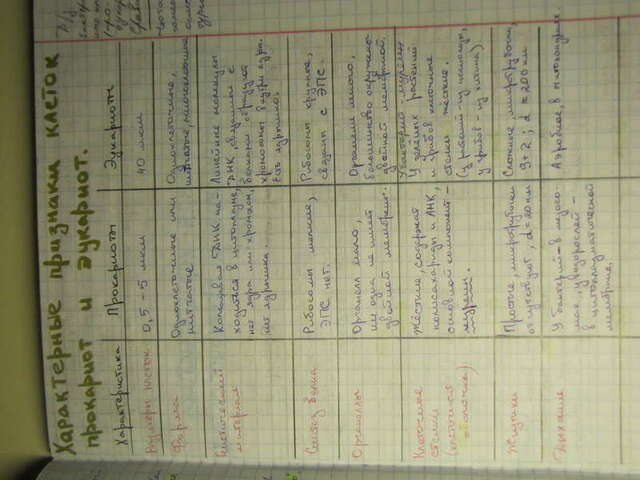 Характерные признаки клеток
прокариот и эукариот.
Характеристика
Прокариоты
Эукариоты
Размеры клеток
0,5 - 5 мкм
40 мкм
Форма
Одноклеточные или
нитчатые
Одноклеточные,
нитчатые,
Генетический
материал
Кольцевая ДНК на-
ходится в цитоплазме,
нет ядра или хромосом,
нет ядрышка.
Линейные молекулы
ДНК связаны с
белками и
хромосомы внутри ядра.
Есть ядрышко.
Синтез белка
Рибосомы мелкие,
ЭПС нет.
Рибосомы крупные,
связаны с ЭПС.
Органеллы
Органелл мало,
ни одна не имеет
двойной мембраны.
Органелл много,
большинство окружено
двойной мембраной.
Клеточные
стенки
Жёсткие содержат
полисахариды и АМК,
основной компонент -
муреин.
У зелёных растений
и грибов клеточные
стенки жёсткие.
(у раст.-из целлюлозы,
у грибов - из хитина)
Жгутики
Простые, микротрубочки
отсутствуют, d = 20 нм
Сложные, микротрубочки,
9+2; d = 200 нм
Дыхание
У бактерий - в мезосо-
мах,
в цитоплазматической
мембране,
Аэробное, в митохондриях.